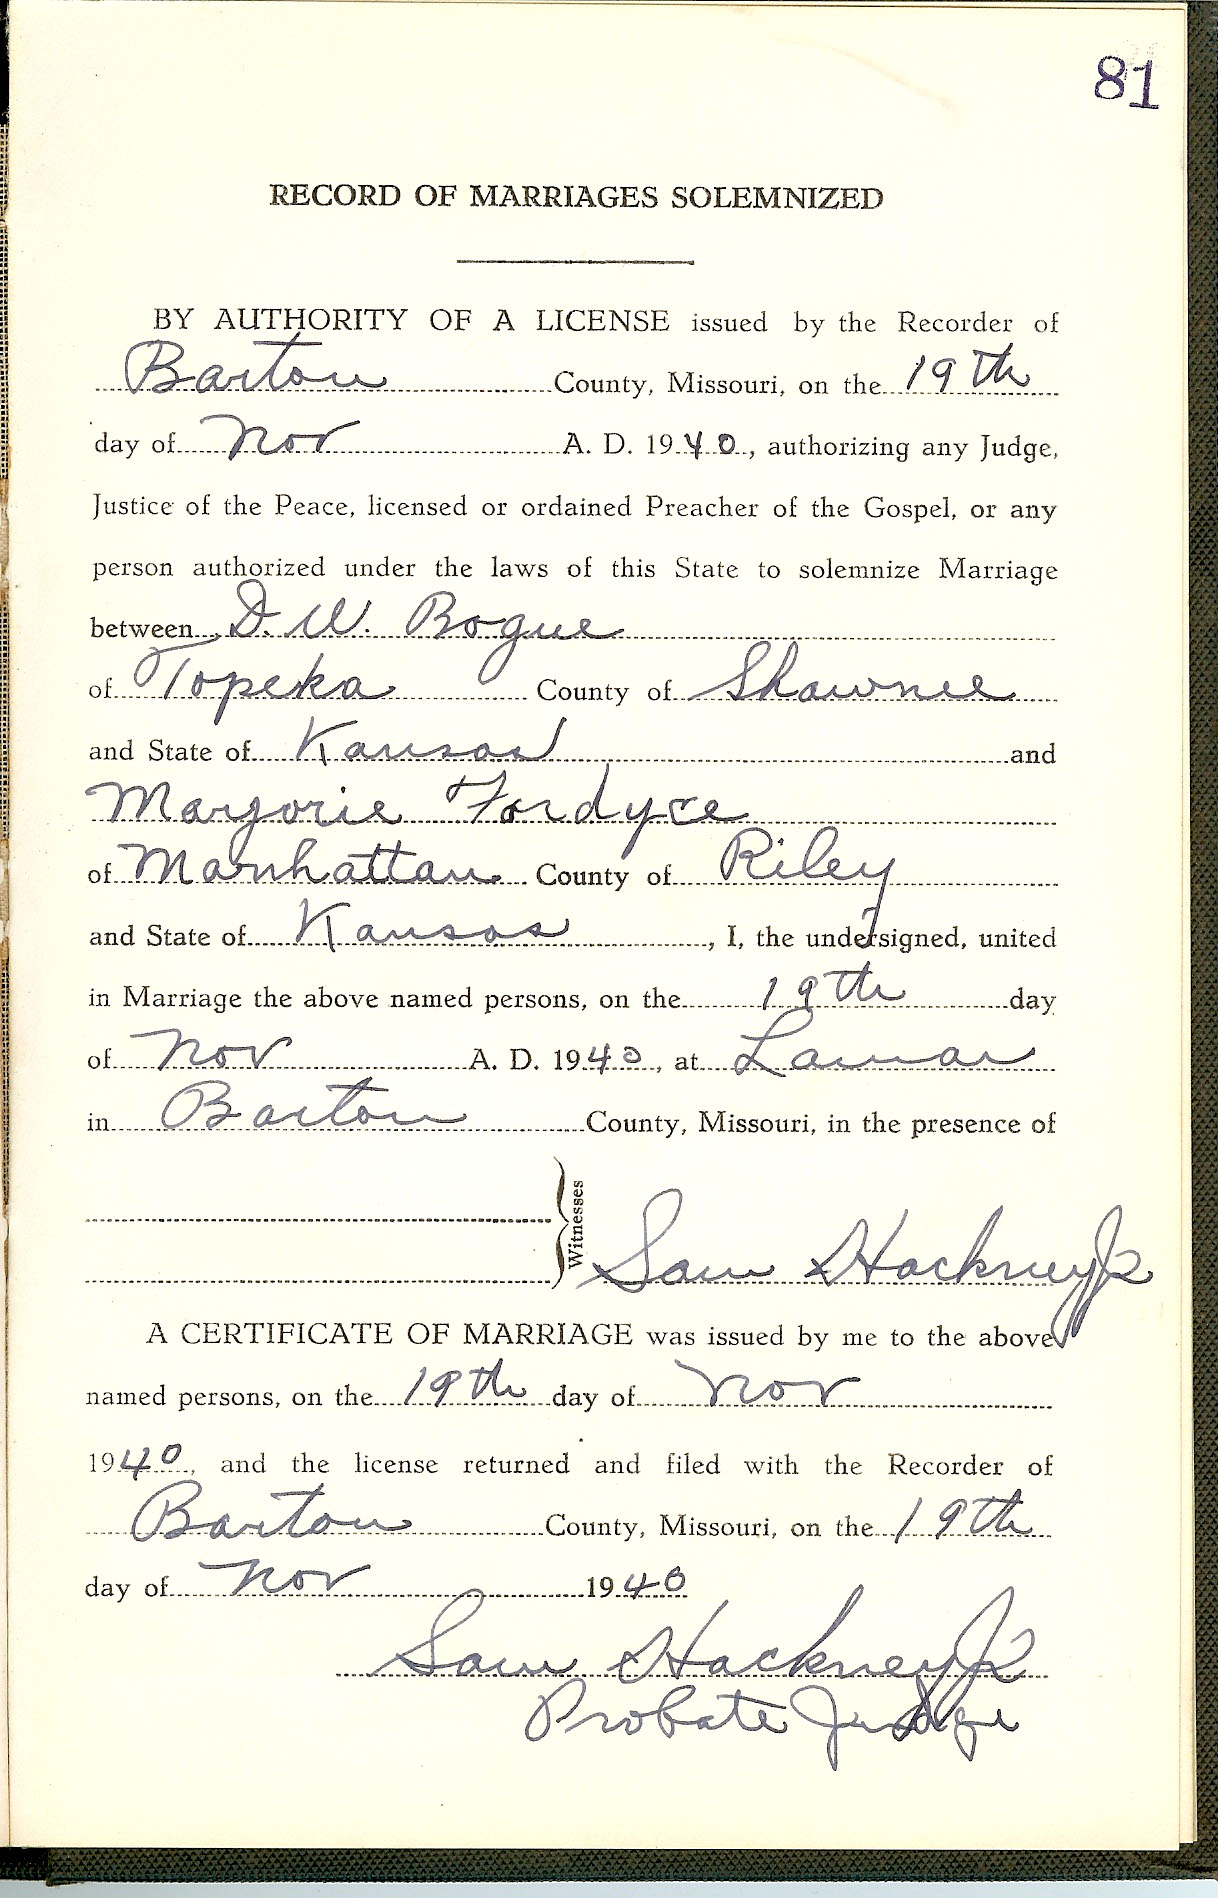 81
RECORD OF MARRIAGES SOLEMNIZED
BY AUTHORITY OF A LICENSE issued by the Recorder of
Barton County, Missouri, on the 19th
day of Nov A. D. 1940, authorizing any Judge,
Justice of the Peace, licensed or ordained Preacher of the Gospel, or any
person authorized under the laws of this State to solemnize Marriage
between D. W. Bogue
of Topeka County of Shawnee
and State of Kansas and
Marjorie Fordyce
of Manhattan County of Riley
and State of Kansas, I, the undersigned, united
in Marriage the above named persons, on the 19th day
of Nov A. D. 1940, at Lamar
in Barton County, Missouri, in the presence of
Witnesses
Sam Hackney Jr
A CERTIFICATE OF MARRIAGE was issued by me to the above
named persons, on the 19th day of Nov
1940, and the license returned and filed with the Recorder of
Barton County, Missouri, on the 19th
day of Nov 1940
Sam Hackney Jr
Probate Judge